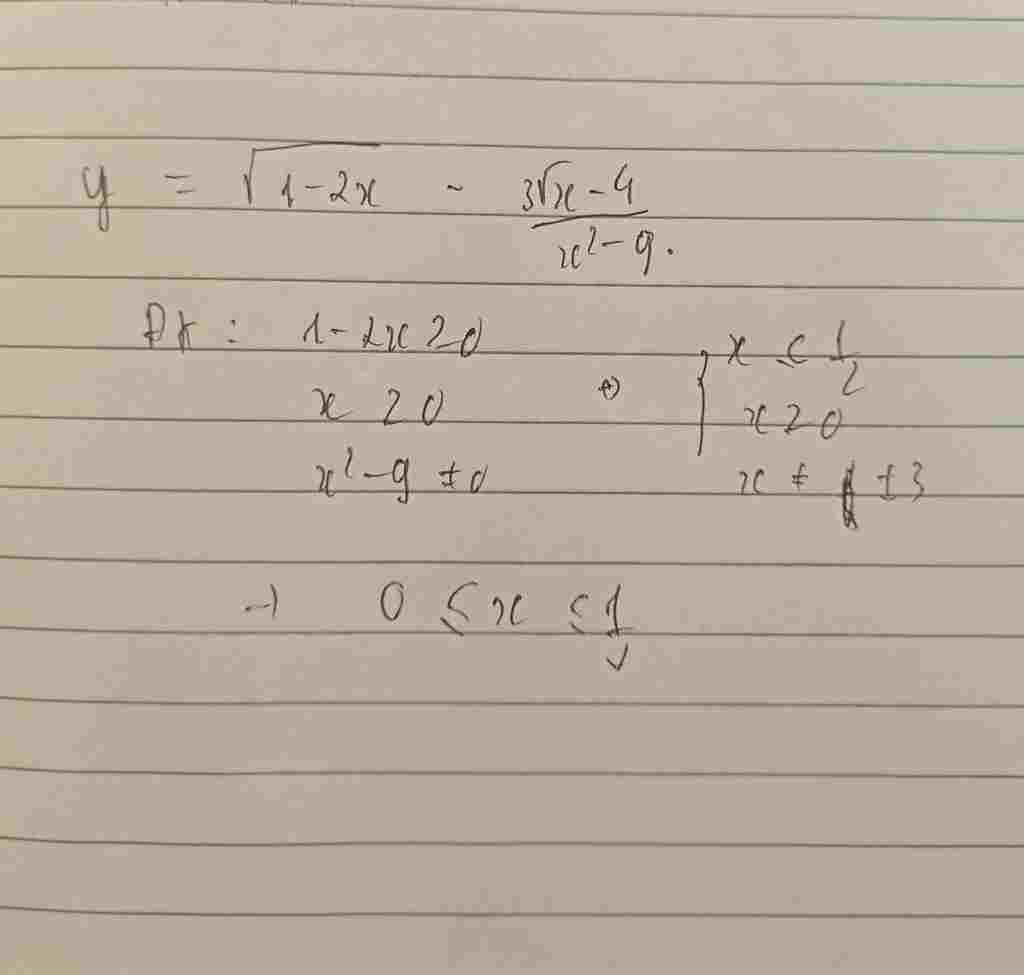 y = √(1-2x) - (3√x - 4)/(x² - 9).
ĐK : 1-2x ≥ 0
x ≥ 0
x² - 9 ≠ 0
⇔ { x ≤ 1/2
x ≥ 0
x ≠ ±3
→ 0 ≤ x ≤ 1/2